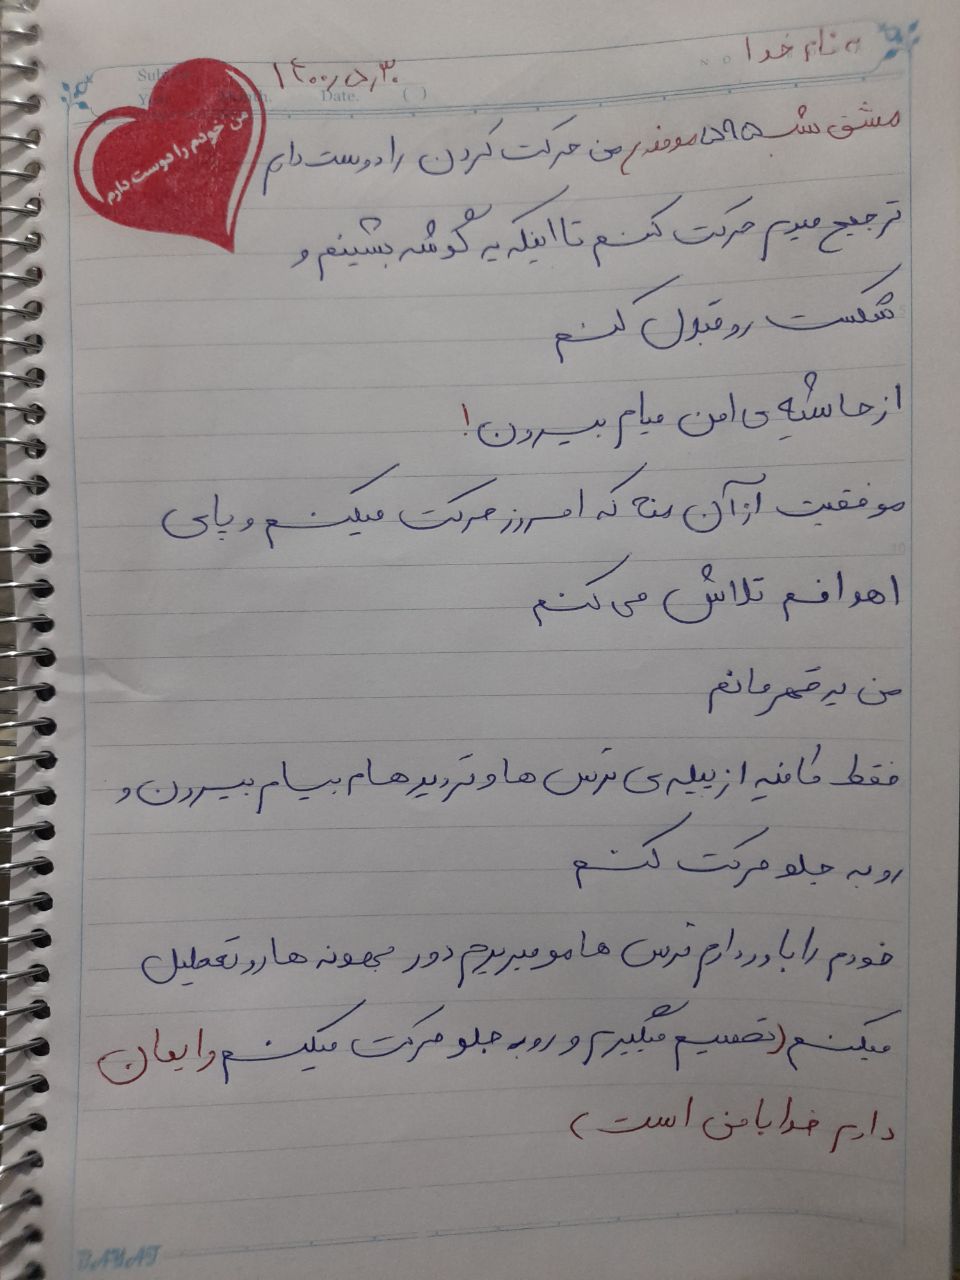 به نام خدا
۱۴۰۰٫۵٫۳۰
Date. ( )
من خودم را دوست دارم
مشق شب ۵۹۵ موفقم من حرکت کردن را دوست دارم
ترجیح میدم حرکت کنم تا اینکه یه گوشه بشینم و
شکست رو قبول کنم
از حاشیه ی امن میام بیرون!
موفقیت از آن منه که امروز حرکت میکنم و پای
اهدافم تلاش می کنم
من یه قهرمانم
فقط کافیه از پیله ی ترس ها و تردیدهام بیام بیرون و
رو به جلو حرکت کنم
خودم را باور دارم ترس هامو میریزم دور بهونه ها رو تعطیل
میکنم (تصمیم میگیرم و رو به جلو حرکت میکنم و ایمان
دارم خدا با من است)
BAYAT